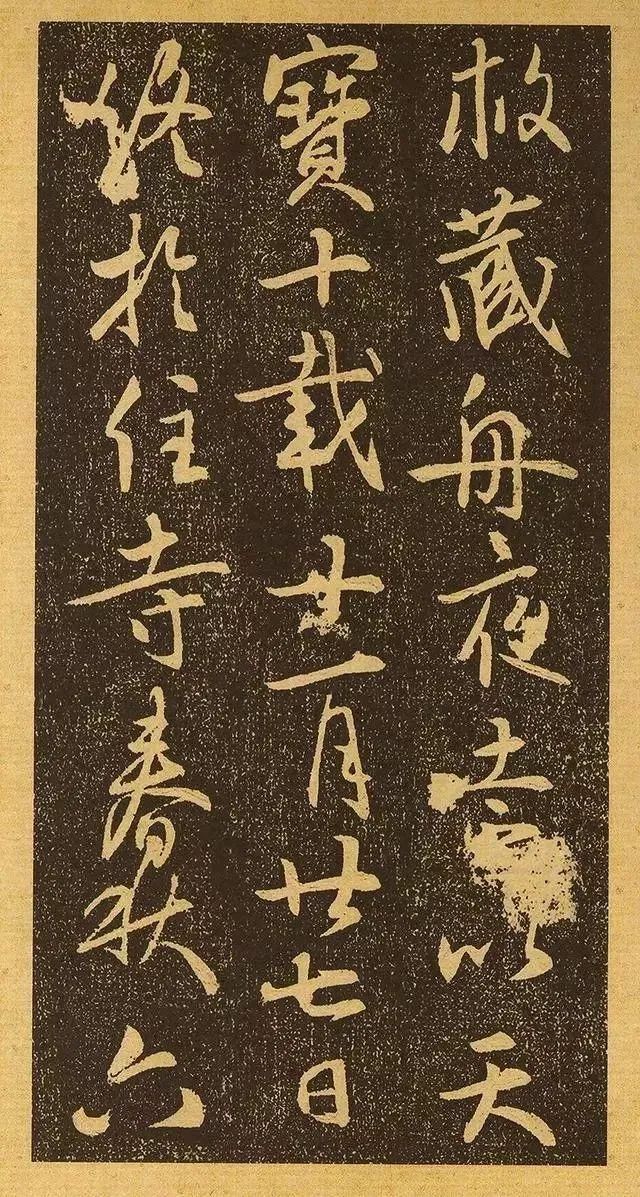 救藏舟夜去以天
寶十載月廿七日
終於住寺春秋六